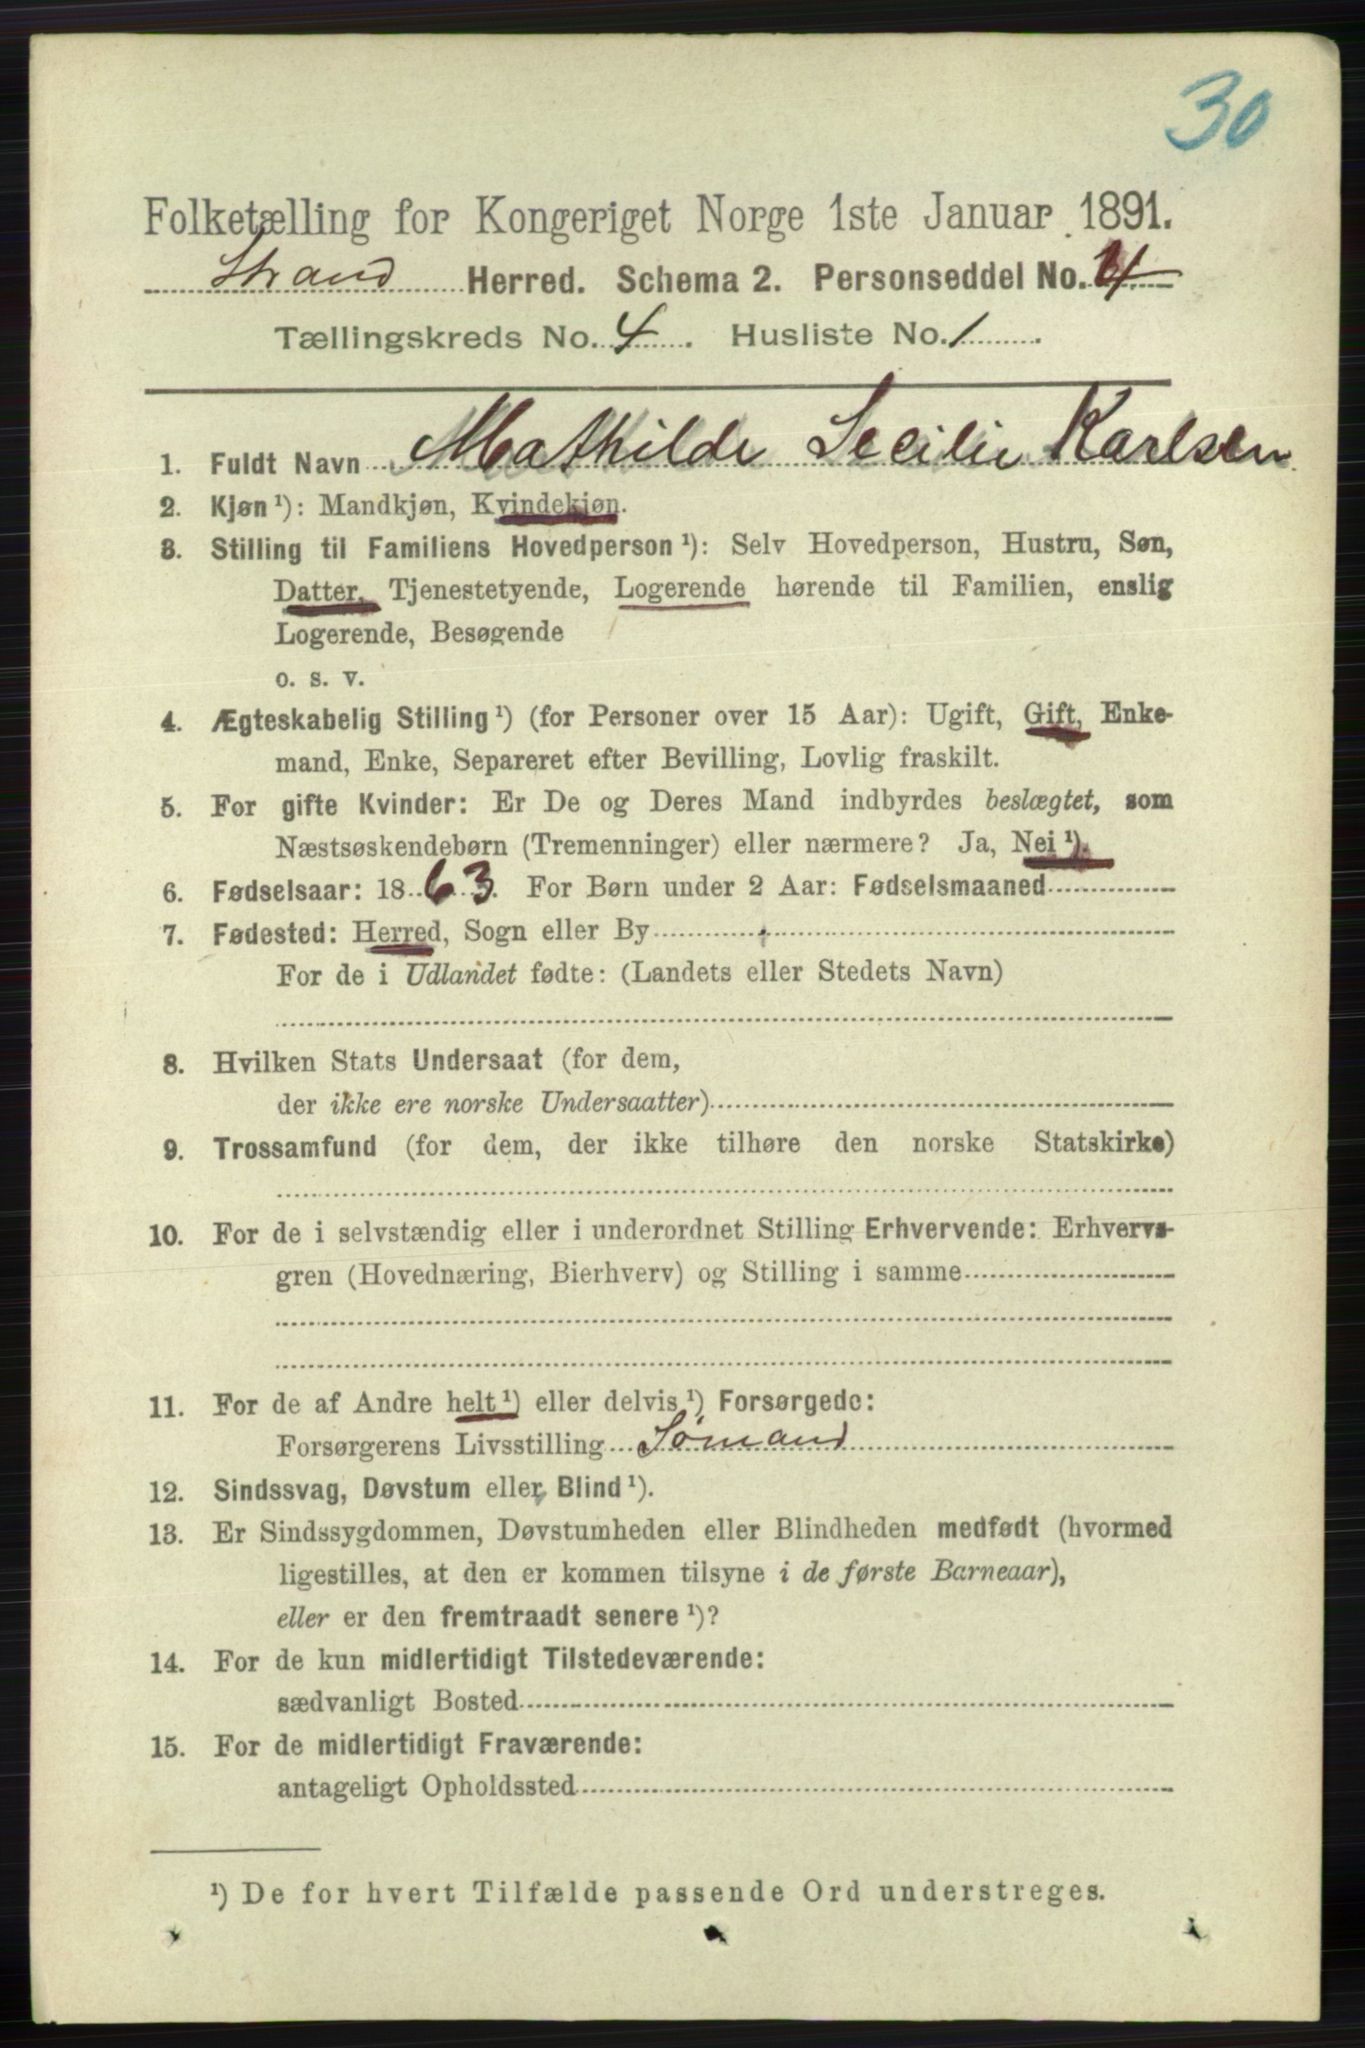 30
Folketælling for Kongeriget Norge 1ste Januar 1891.
Strand Herred. Schema 2. Personseddel No. 4
Tællingskreds No. 4. Husliste No. 1.
1. Fuldt Navn Mathilde Secilie Karlsen
2. Kjøn¹): Mandkjøn, Kvindekjøn.
3. Stilling til Familiens Hovedperson¹): Selv Hovedperson, Hustru, Søn,
Datter, Tjenestetyende, Logerende hørende til Familien, enslig
Logerende, Besøgende
o. s. v.
4. Ægteskabelig Stilling¹) (for Personer over 15 Aar): Ugift, Gift, Enke-
mand, Enke, Separeret efter Bevilling, Lovlig fraskilt.
5. For gifte Kvinder: Er De og Deres Mand indbyrdes beslægtet, som
Næstsøskendebørn (Tremenninger) eller nærmere? Ja, Nei¹).
6. Fødselsaar: 1863. For Børn under 2 Aar: Fødselsmaaned
7. Fødested: Herred, Sogn eller By
For de i Udlandet fødte: (Landets eller Stedets Navn)
8. Hvilken Stats Undersaat (for dem,
der ikke ere norske Undersaatter)
9. Trossamfund (for dem, der ikke tilhøre den norske Statskirke)
10. For de i selvstændig eller i underordnet Stilling Erhvervende: Erhvervs-
gren (Hovednæring, Bierhverv) og Stilling i samme
11. For de af Andre helt¹) eller delvis¹) Forsørgede:
Forsørgerens Livsstilling Sømand
12. Sindssvag, Døvstum eller Blind¹).
13. Er Sindssygdommen, Døvstumheden eller Blindheden medfødt (hvormed
ligestilles, at den er kommen tilsyne i de første Barneaar),
eller er den fremtraadt senere¹)?
14. For de kun midlertidigt Tilstedeværende:
sædvanligt Bosted
15. For de midlertidigt Fraværende:
antageligt Opholdssted
¹) De for hvert Tilfælde passende Ord understreges.